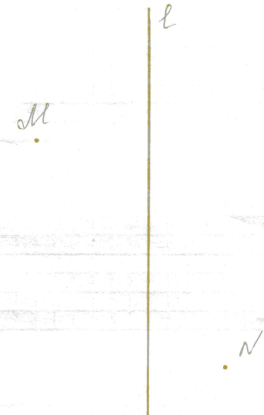 l
M
N